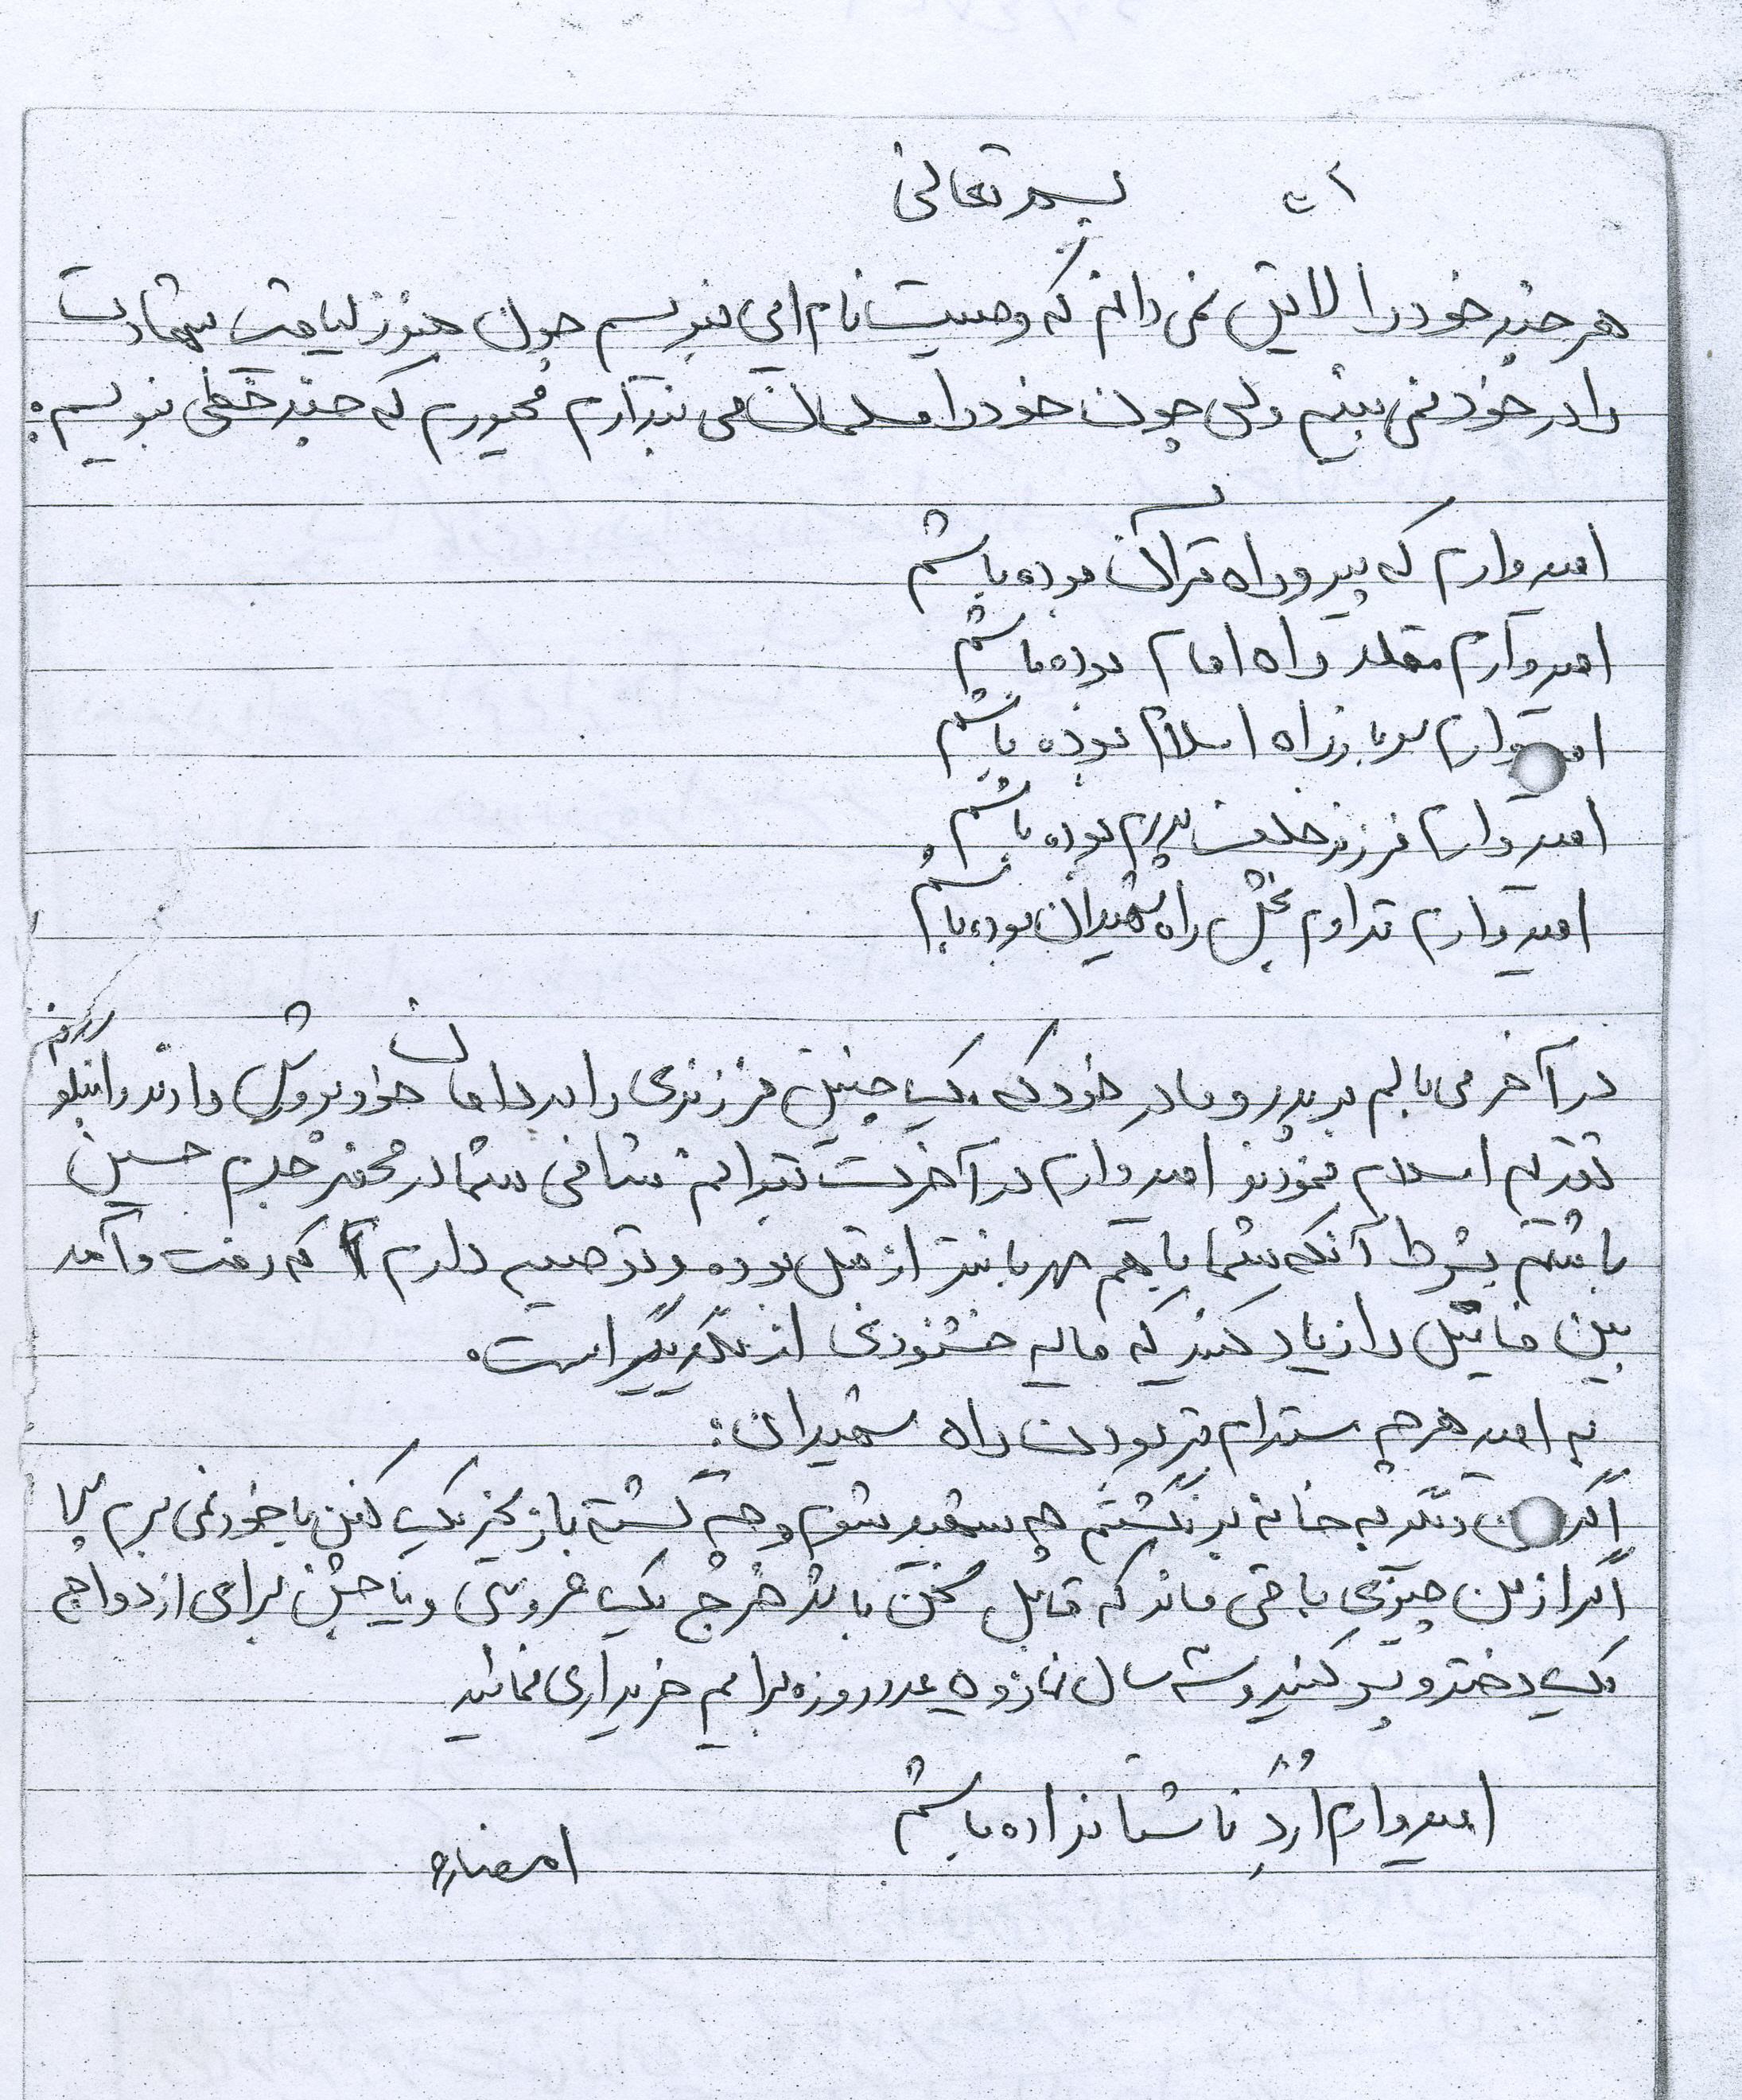 بسمه تعالی
هر چند خود را لایق نمی دانم که وصیت نام ای بنویسم چون هنوز لیاقت شهادت
را در خود نمی بینم ولی چون خود را مسلمان می پندارم مجبورم که چند خطی بنویسم:
امیدوارم که پیرو راه قرآن بوده باشم
امیدوارم مقلد راه امام بوده باشم
امیدوارم سرباز راه اسلام بوده باشم
امیدوارم فرزند خلف پدرم بوده باشم
امیدوارم تداوم بخش راه شهیدان بوده باشم
در آخر می بالم بر پدر و مادر خود که یک چنین فرزندی را در دامان خود پرورش دادند و اینگونه
تقدیم اسلام نمودند امیدوارم در آخرت بتوانم شافی شما در محضر جدم حسین
باشم بشرط آنکه شما با هم مهربانتر از قبل بوده و توصیه دارم که رفت و آمد
بین فامیل را زیاد کنید که مایه خشنودی از یکدیگر است.
به امید هر چه مستدام تر بودن راه شهیدان:
اگر من دیگر به خانه برنگشتم چه شهید شوم و چه کشته باز بجز یک کفن با خود نمی برم
اگر از من چیزی باقی ماند که قابل گفتن باشد خرج یک عروسی و یا جشن برای ازدواج
یک دختر و پسر کنید و سه سال نماز و ۵ عدد روزه برایم خریداری نمائید
امیدوارم ارد ناشتا نداده باشم
امضاء